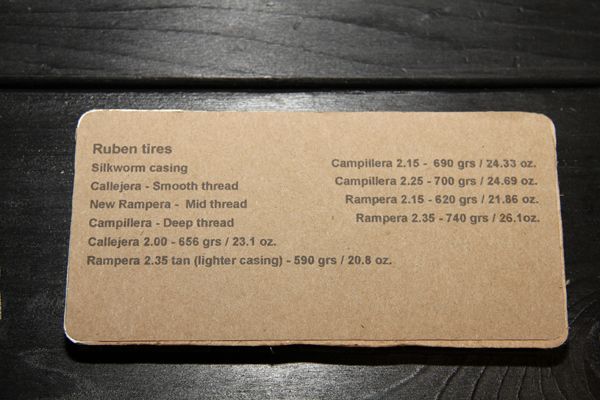 Ruben tires
Silkworm casing
Callejera - Smooth thread
New Rampera - Mid thread
Campillera - Deep thread
Callejera 2.00 - 656 grs / 23.1 oz.
Rampera 2.35 tan (lighter casing) - 590 grs / 20.8 oz.
Campillera 2.15 - 690 grs / 24.33 oz.
Campillera 2.25 - 700 grs / 24.69 oz.
Rampera 2.15 - 620 grs / 21.86 oz.
Rampera 2.35 - 740 grs / 26.1oz.